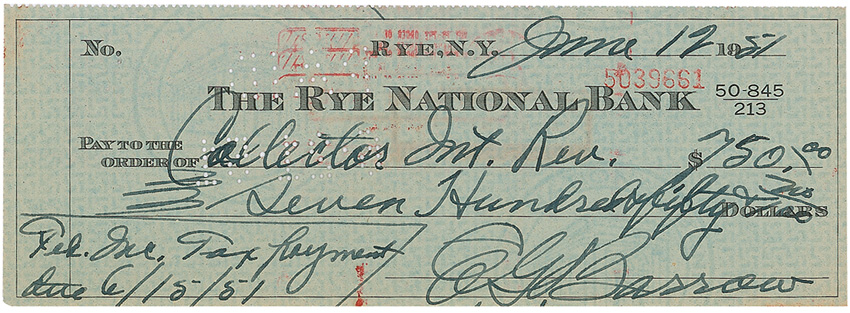 No. RYE, N.Y. June 12 1951
5039661
THE RYE NATIONAL BANK 50-845/213
PAY TO THE ORDER OF Collector Int. Rev. $750.00
Seven Hundred fifty & DOLLARS
Fed. Inc. Tax payment
due 6/15/51
E.G. Barrow